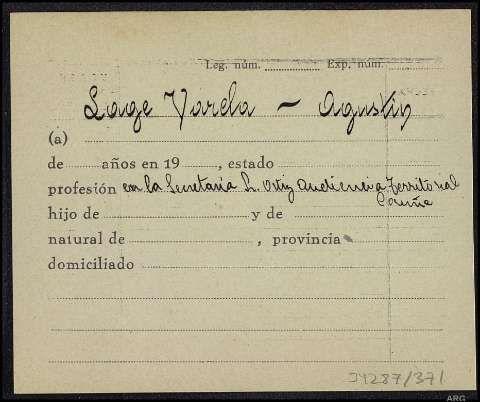 Leg. núm. Exp. núm.
Lage Varela - Agustin
(a)
de años en 19 , estado
profesión en la Secretaria S. Ortiz Audiencia Territorial
Coruña
hijo de y de
natural de , provincia
domiciliado
J4287/371
ARG